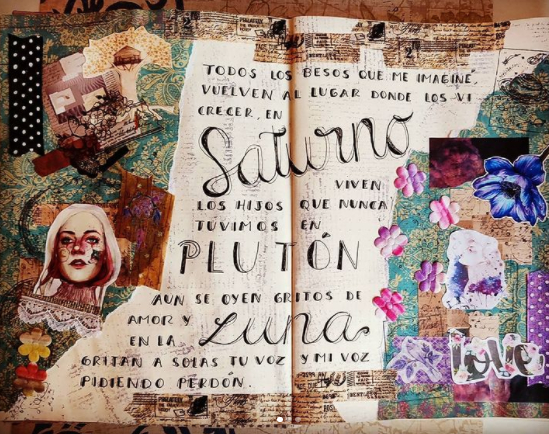 TODOS LOS BESOS QUE ME IMAGINE,
VUELVEN AL LUGAR DONDE LOS VI
CRECER, EN
Saturno
VIVEN
LOS HIJOS QUE NUNCA
TUVIMOS EN
PLUTÓN
AUN SE OYEN GRITOS DE
AMOR Y
EN LA
Luna
GRITAN A SOLAS TU VOZ Y MI VOZ
PIDIENDO PERDÓN.
love